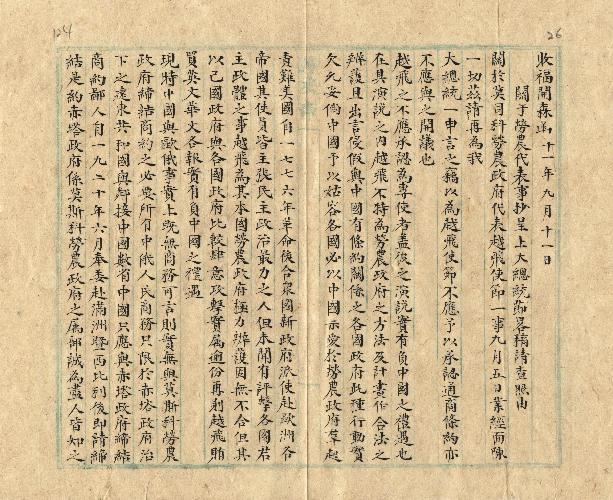 124
26
收福開森函 十一年九月十一日
關于勞農代表事抄呈上大總統節畧稿請查照由
關於莫司科勞農政府代表越飛使節一事九月五日業經面陳
一切茲請再為我
大總統一申言之竊以為越飛使節不應予以承認通商條約亦
不應與之開議也
越飛之不應承認為專使者蓋彼之演說實有負中國之禮遇也
在其演說之內越飛不特為勞農政府之方法及計畫作合法之
辯護且出言侵假與中國有條約關係之各國政府此種行動實
欠允妥倘中國予以姑容各國必以中國示愛於勞農政府羣起
責難美國自一七七六年革命後合衆國新政府派使赴歐洲各
帝國其使員皆主張民主政治最力之人但未聞有評擊各國君
主政體之事越飛為其本國勞農政府極力辯護固無不合但其
以己國政府與各國政府比較肆意攻擊實屬逾份再則越飛賄
買英文華文各報實有負中國之禮遇
現時中國與歐俄事實上既無商務可言則實無與莫斯科勞農
政府締結商約之必要所有中俄人民商務只限於赤塔政府治
下之遠東共和國與鄰接中國數省中國只應與赤塔政府締結
商約鄙人自一九二十年六月奉委赴滿洲暨西比利後即請締
結是約赤塔政府係莫斯科勞農政府之屬部誠為盡人皆知之